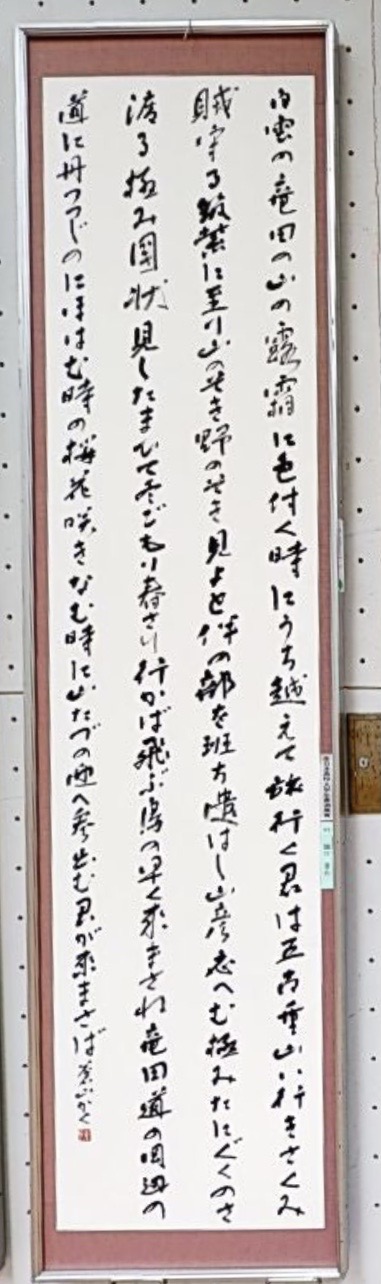 白雲の竜田の山の露霜に色付く時にうち越えて旅行く君は五百重山い行きさくみ
賊守る筑紫に至り山のそき野のそき見よと伴の部を班ち遣はし山彦応へむ極みたにぐくのさ
渡る極み國状見したまひて冬ごもり春さり行かば飛ぶ鳥の早く来まさね竜田道の岡辺の
道に丹つつじのにほはむ時の桜花咲きなむ時に山たづの迎へ参出む君が来まさば